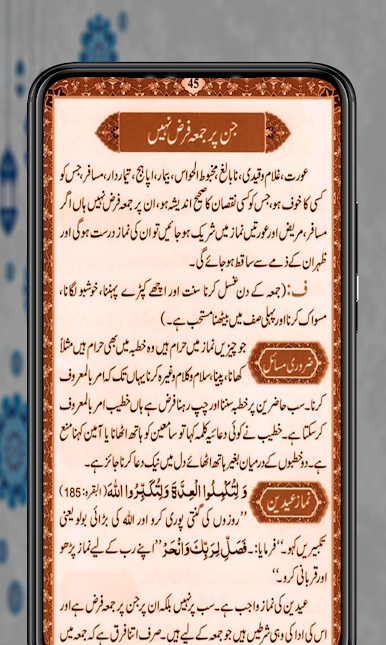 45
جن پر جمعہ فرض نہیں
عورت، غلام و قیدی، نابالغ مخبوط الحواس، بیمار، اپاہج، تیماردار، مسافر، جس کو
کسی کا خوف ہو، جس کو کسی نقصان کا صحیح اندیشہ ہو، ان پر جمعہ فرض نہیں ہاں اگر
مسافر، مریض اور عورتیں نماز میں شریک ہو جائیں تو ان کی نماز درست ہوگی اور
ظہر ان کے ذمے سے ساقط ہو جائے گی۔
ف: (جمعہ کے دن غسل کرنا سنت اور اچھے کپڑے پہننا، خوشبو لگانا،
مسواک کرنا اور پہلی صف میں بیٹھنا مستحب ہے۔)
ضروری مسائل
جو چیزیں نماز میں حرام ہیں وہ خطبہ میں بھی حرام ہیں مثلاً
کھانا، پینا، سلام و کلام وغیرہ کرنا یہاں تک کہ امر بالمعروف
کرنا۔ سب حاضرین پر خطبہ سننا اور چپ رہنا فرض ہے ہاں خطیب امر بالمعروف
کر سکتا ہے۔ خطیب نے کوئی دعائیہ کلمہ کہا تو سامعین کو ہاتھ اٹھانا یا آمین کہنا منع
ہے۔ دو خطبوں کے درمیان بغیر ہاتھ اٹھائے دل میں نیک دعا کرنا جائز ہے۔
نماز عیدین
وَلِتُكْمِلُوا الْعِدَّةَ وَلِتُكَبِّرُوا اللّٰهَ (البقرہ:185)
’’روزوں کی گنتی پوری کرو اور اللہ کی بڑائی بولو یعنی
تکبیریں کہو۔‘‘ فرمایا: ۔ فَصَلِّ لِرَبِّكَ وَانْحَرْ ’’اپنے رب کے لیے نماز پڑھو
اور قربانی کرو۔‘‘
عیدین کی نماز واجب ہے۔ سب پر نہیں بلکہ ان پر جن پر جمعہ فرض ہے اور
اس کی ادا کی وہی شرطیں ہیں جو جمعہ کے لیے ہیں۔ صرف اتنا فرق ہے کہ جمعہ میں